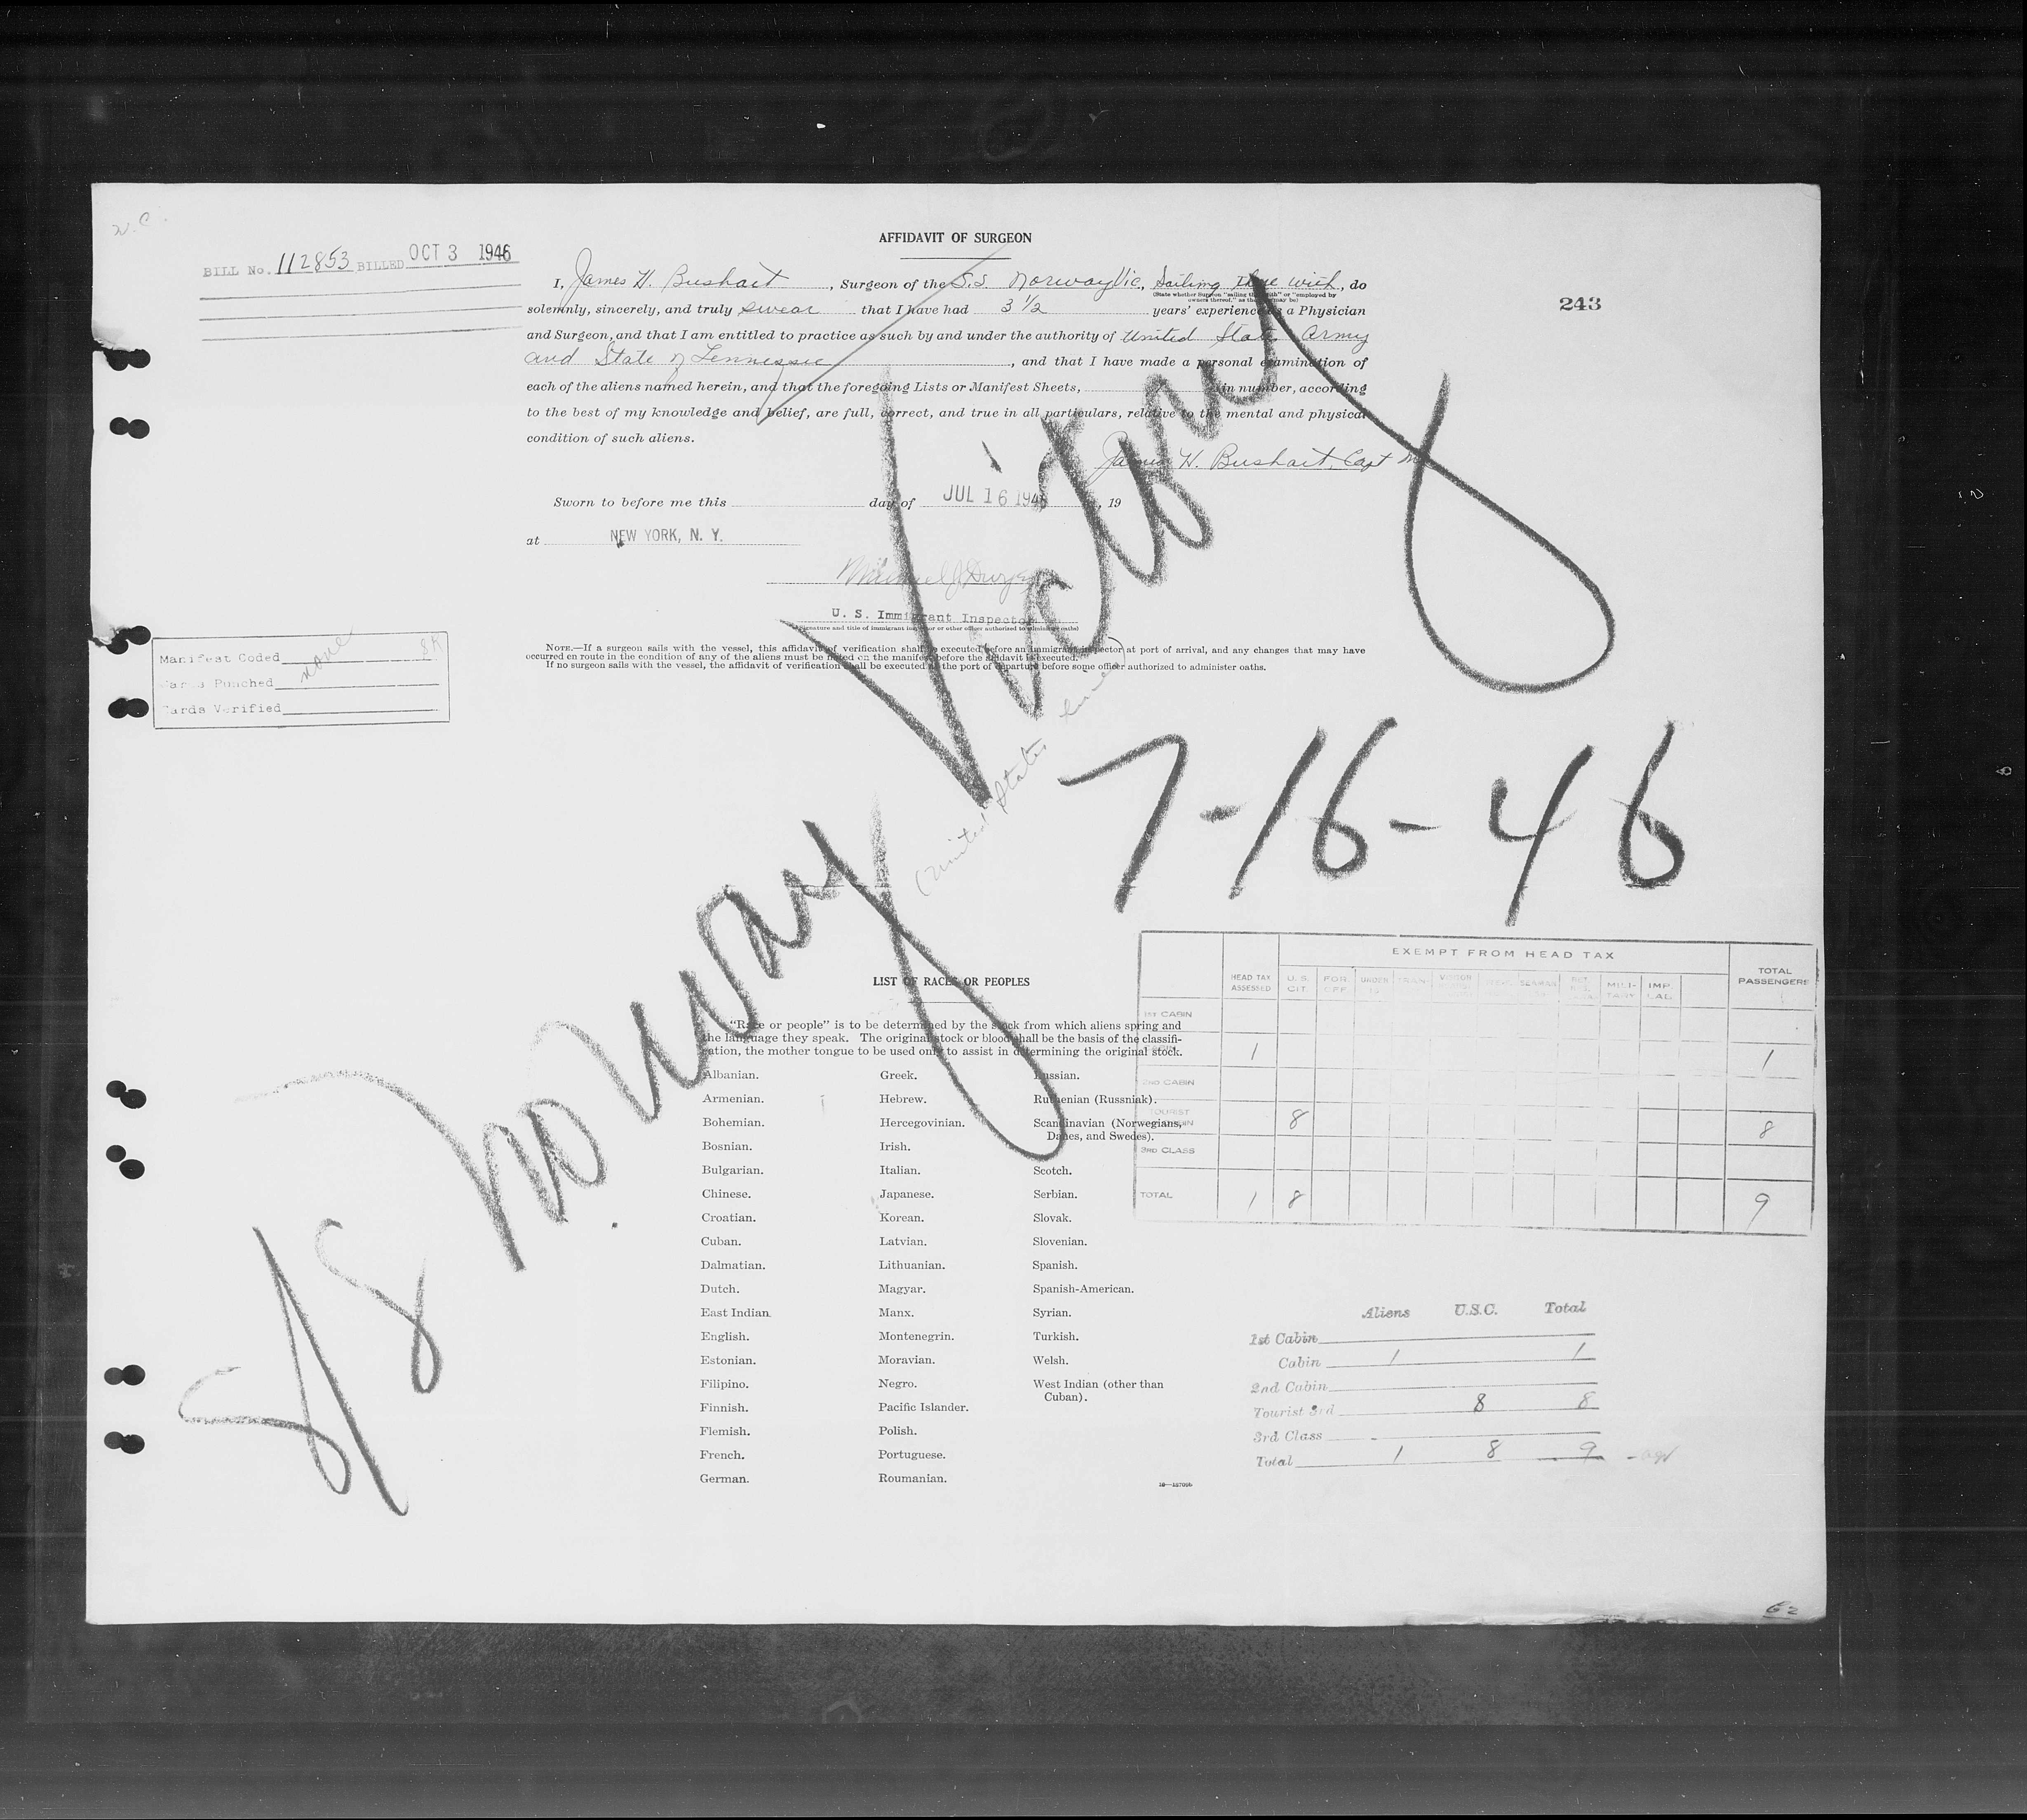 N.C.
BILL No. 112853 BILLED OCT 3 1946
AFFIDAVIT OF SURGEON
243
I, James H. Bushart, Surgeon of the S.S. Norway Vic, Sailing with, do
(State whether Surgeon "sailing therewith" or "employed by
owners thereof," as the case may be)
solemnly, sincerely, and truly swear that I have had 3 1/2 years' experience as a Physician
and Surgeon, and that I am entitled to practice as such by and under the authority of United States Army
and State of Tennessee, and that I have made a personal examination of
each of the aliens named herein, and that the foregoing Lists or Manifest Sheets, in number, according
to the best of my knowledge and belief, are full, correct, and true in all particulars, relative to the mental and physical
condition of such aliens.
James H. Bushart, Capt
Sworn to before me this day of JUL 16 1946, 19
at NEW YORK, N. Y.
U. S. Immigrant Inspector
(Signature and title of immigrant inspector or other officer authorized to administer oaths)
NOTE.—If a surgeon sails with the vessel, this affidavit of verification shall be executed before an immigrant inspector at port of arrival, and any changes that may have
occurred en route in the condition of any of the aliens must be noted on the manifest before the affidavit is executed.
If no surgeon sails with the vessel, the affidavit of verification shall be executed at the port of departure before some officer authorized to administer oaths.
Manifest Coded none SR
Cards Punched
Cards Verified
SS Norway Victory
(United States Lines)
7-16-46
LIST OF RACES OR PEOPLES
"Race or people" is to be determined by the stock from which aliens spring and
the language they speak. The original stock or blood shall be the basis of the classifi-
cation, the mother tongue to be used only to assist in determining the original stock.
Albanian. Greek. Russian.
Armenian. Hebrew. Ruthenian (Russniak).
Bohemian. Hercegovinian. Scandinavian (Norwegians,
Danes, and Swedes).
Bosnian. Irish.
Bulgarian. Italian. Scotch.
Chinese. Japanese. Serbian.
Croatian. Korean. Slovak.
Cuban. Latvian. Slovenian.
Dalmatian. Lithuanian. Spanish.
Dutch. Magyar. Spanish-American.
East Indian. Manx. Syrian.
English. Montenegrin. Turkish.
Estonian. Moravian. Welsh.
Filipino. Negro. West Indian (other than
Cuban).
Finnish. Pacific Islander.
Flemish. Polish.
French. Portuguese.
German. Roumanian.
EXEMPT FROM HEAD TAX
HEAD TAX ASSESSED U.S. CIT. FOR. OFF. MILI-TARY TOTAL PASSENGERS
1ST CABIN
CABIN 1 1
2ND CABIN
TOURIST CABIN 8 8
3RD CLASS
TOTAL 1 8 9
Aliens U.S.C. Total
1st Cabin
Cabin 1 1
2nd Cabin
Tourist 3rd 8 8
3rd Class
Total 1 8 9
62